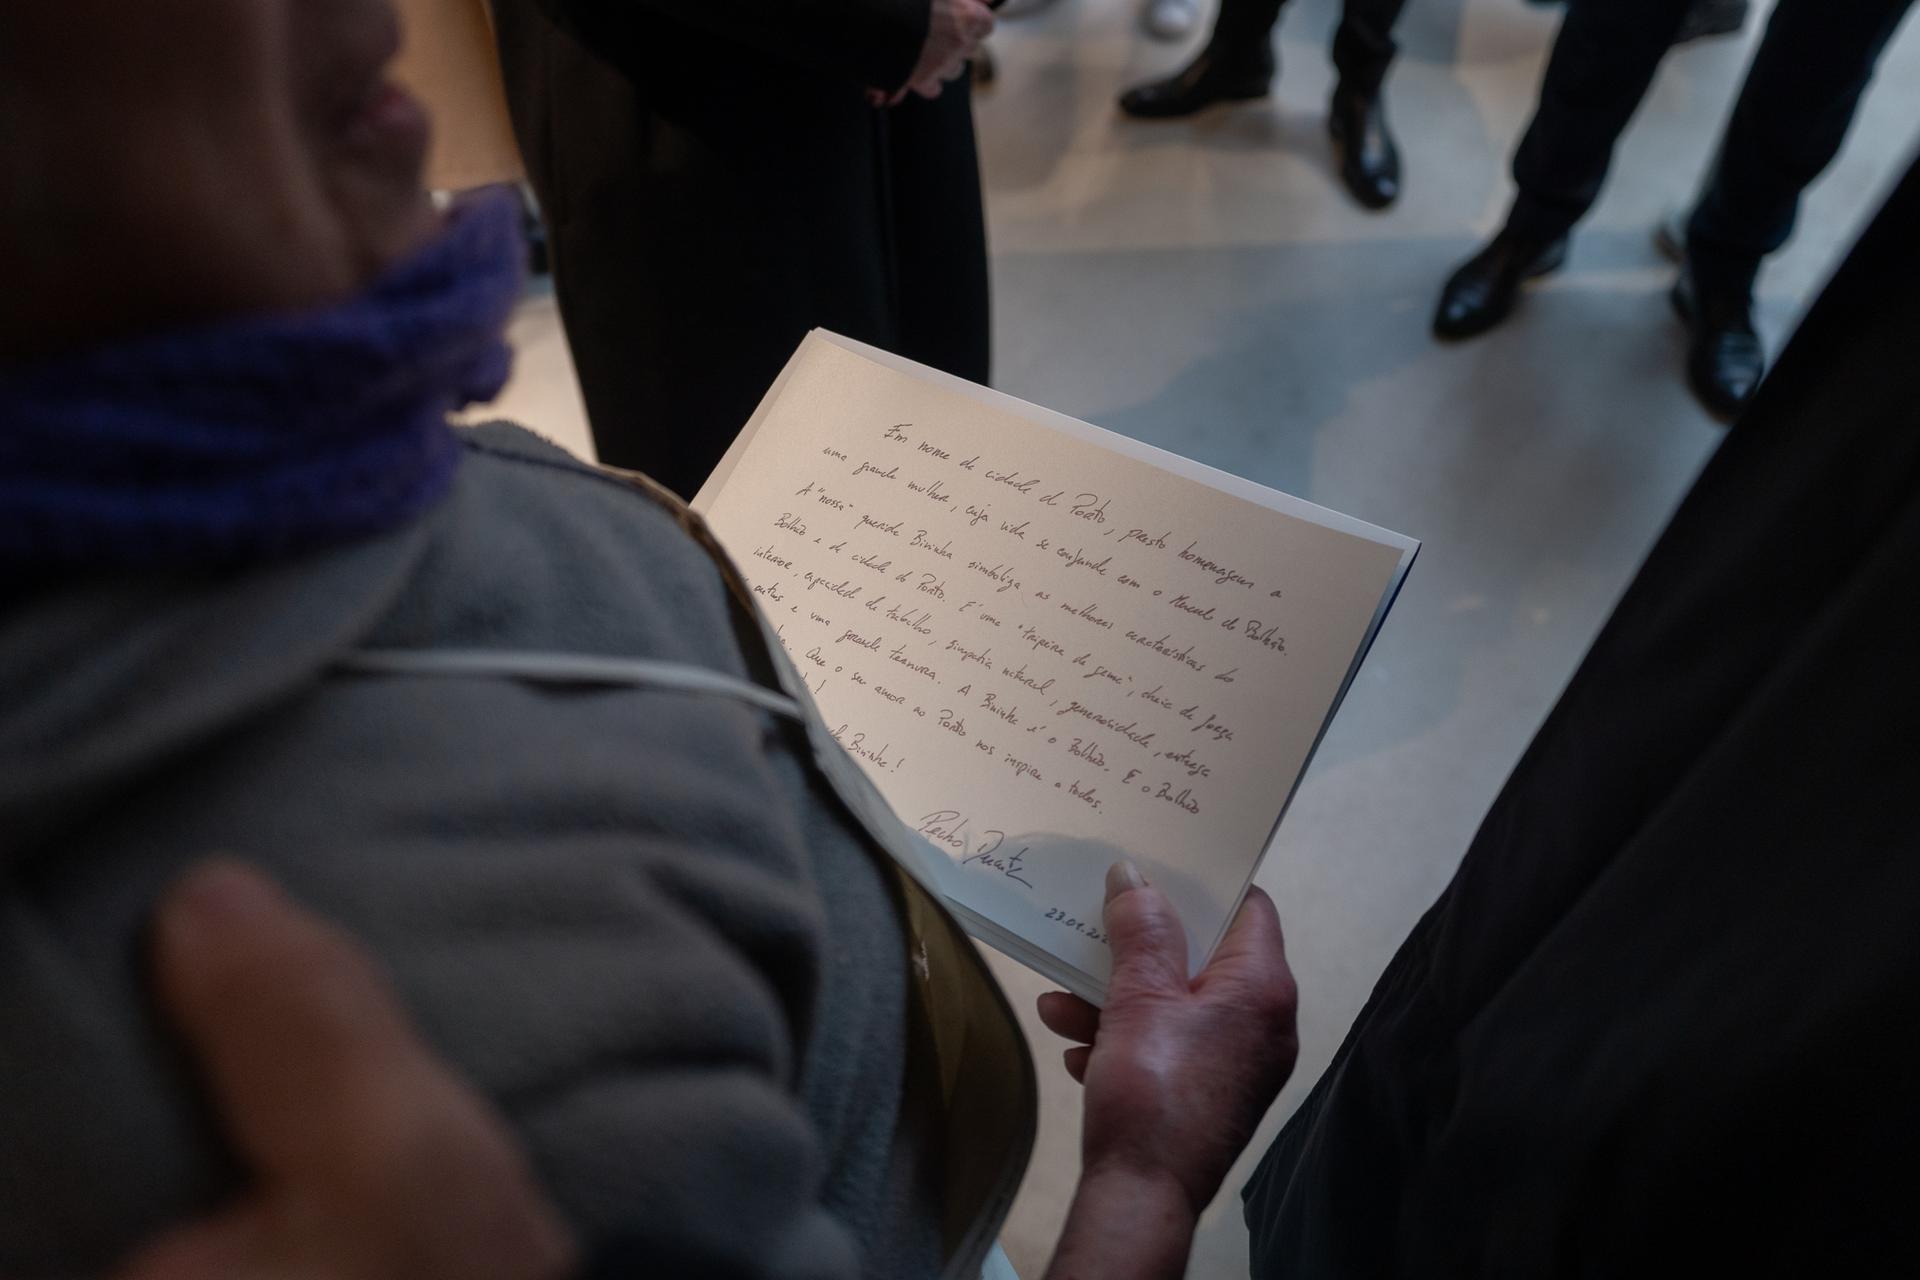 Em nome da cidade do Porto, presto homenagem a
uma grande mulher, cuja vida se confunde com o Mercado do Bolhão.
A "nossa" querida Bininha simboliza as melhores características do
Bolhão e da cidade do Porto. É uma "tripeira de gema", cheia de força
interior, capacidade de trabalho, simpatia natural, generosidade, entrega
outros e uma grande ternura. A Bininha é o Bolhão. E o Bolhão
Que o seu amor ao Porto nos inspire a todos.
!
Bininha!
Pedro Duarte
23.01.202